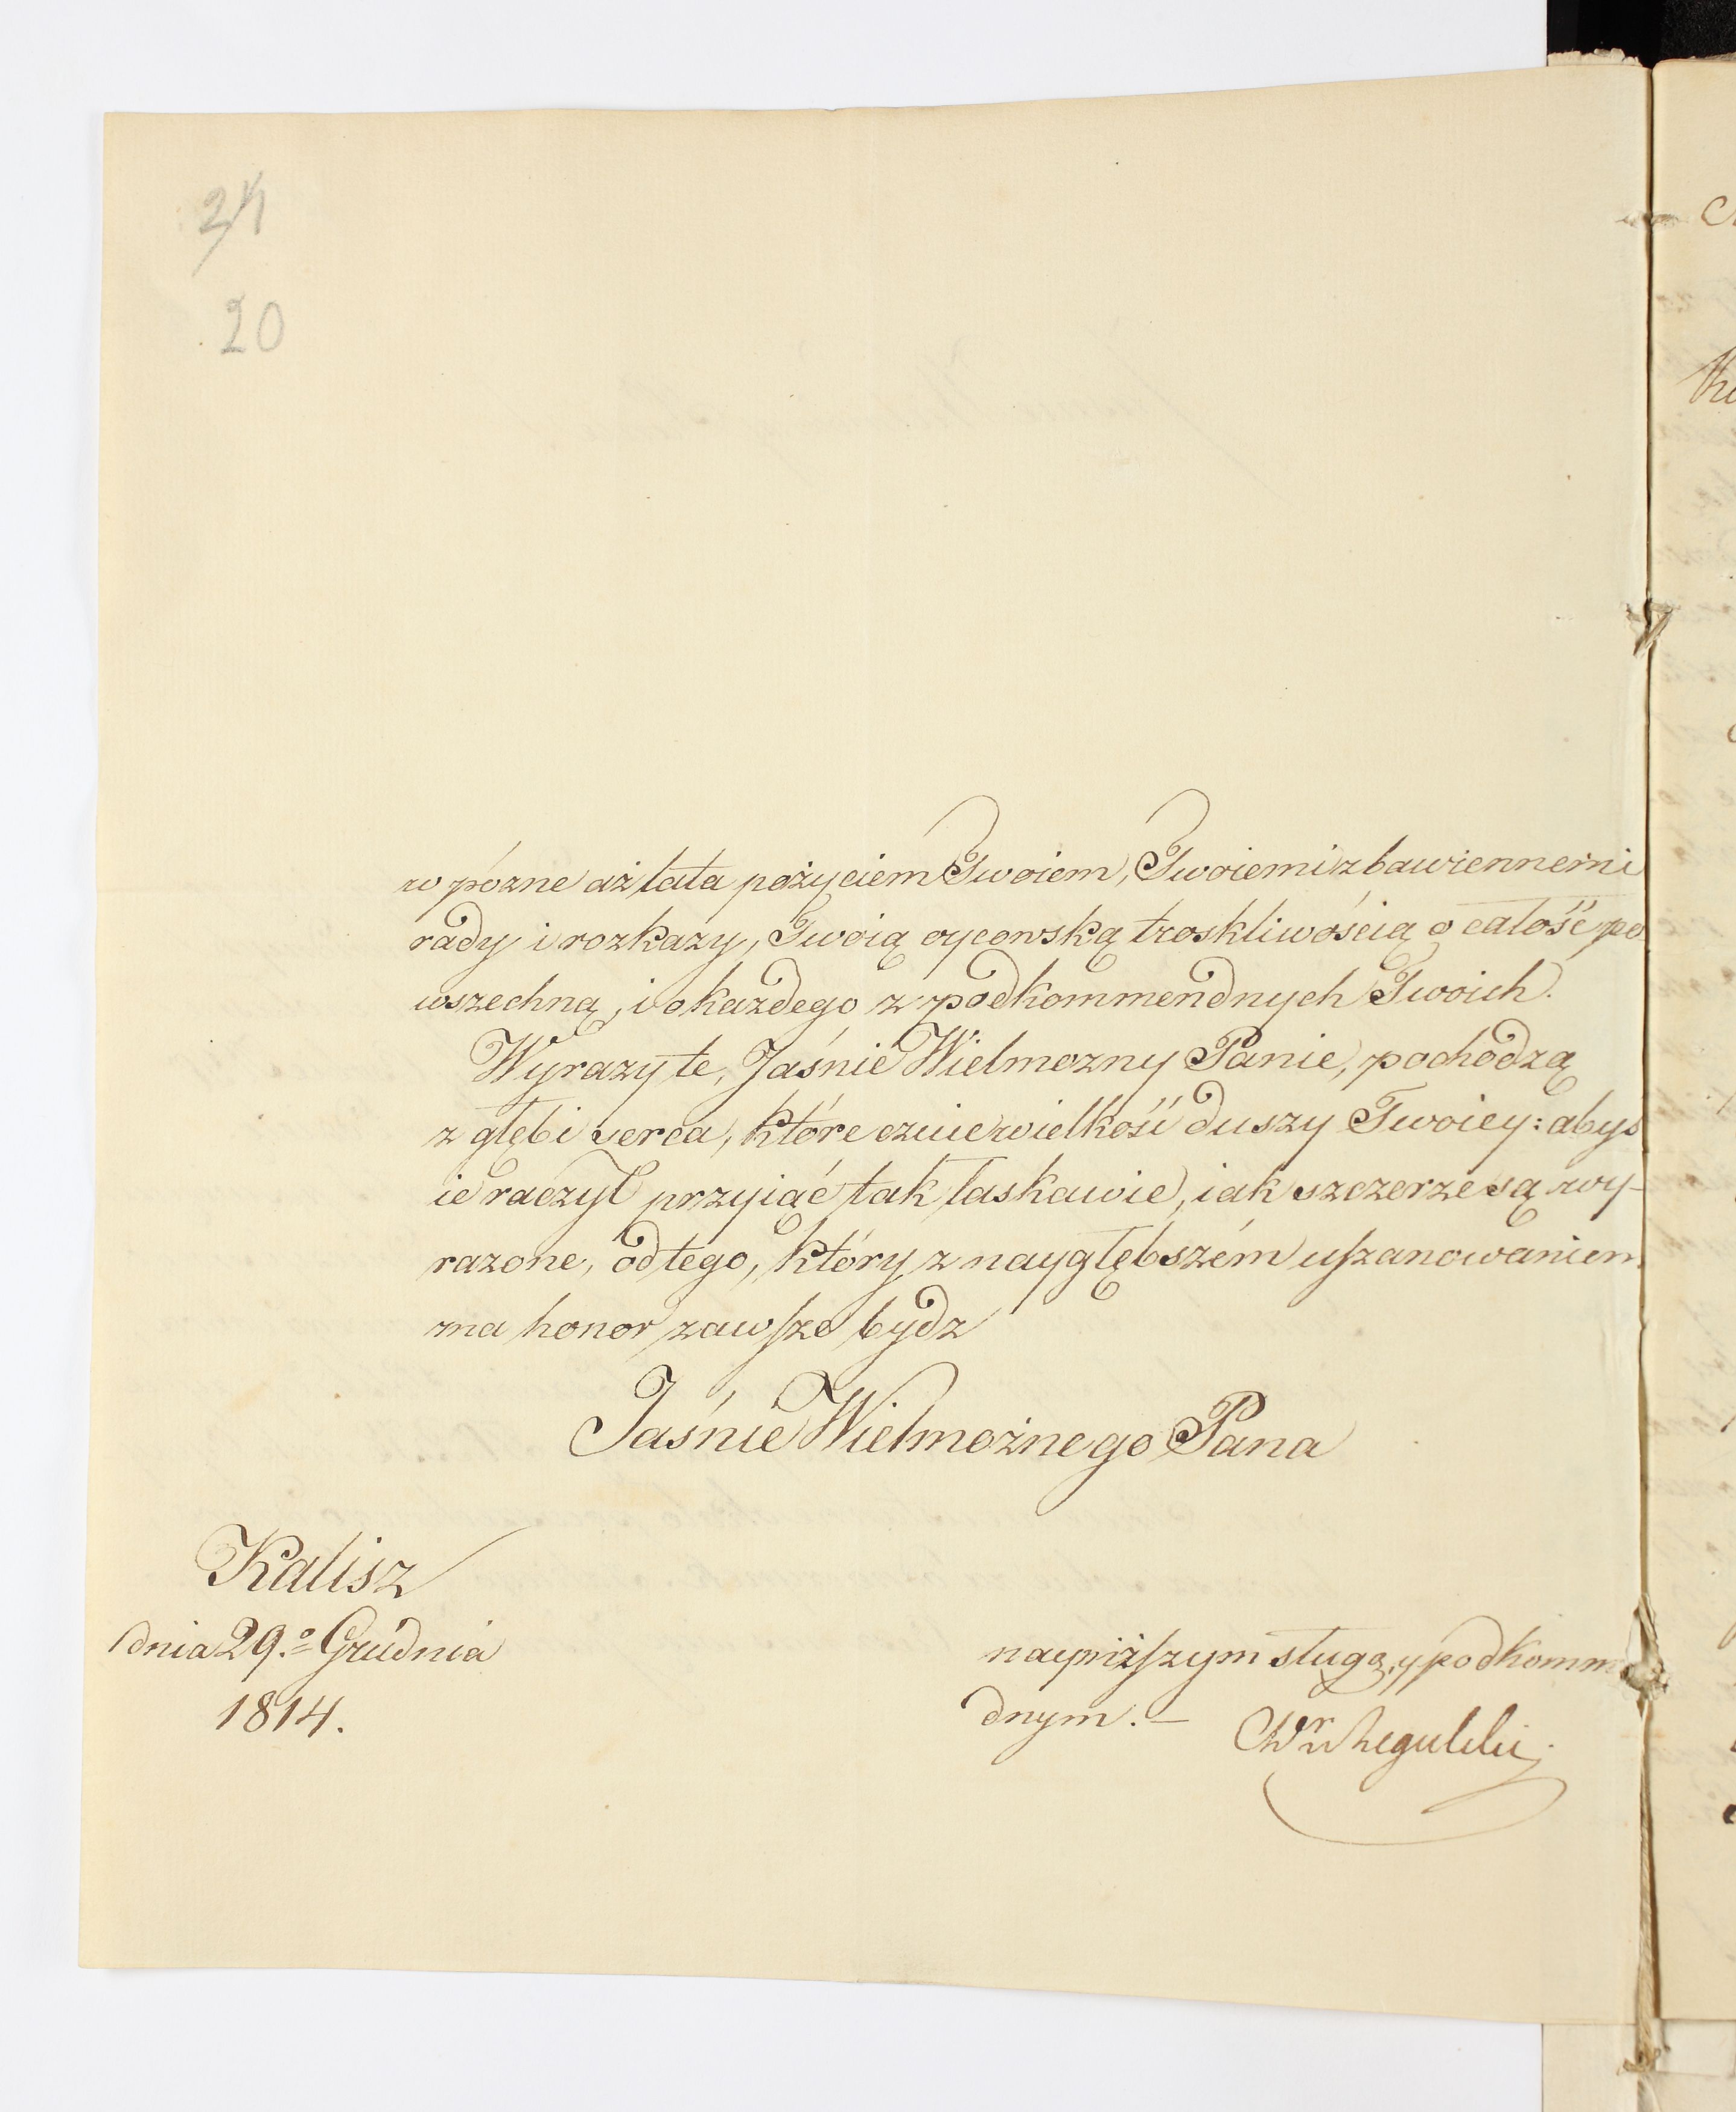 24
20
w pózne aż lata pożyciem Twoiem, Twoiemi zbawiennemi
rady i rozkazy, Twoią oycowską troskliwością o całość po
wszechną, i o każdego z podkommendnych Twoich.
Wyrazy te, Jaśnie Wielmozny Panie, pochodzą
z głębi serca, które czuie wielkość duszy Twoiey: abyś
ie raczył przyiąć tak łaskawie, iak szczerze są wy-
razone, od tego, który z naygłębszém uszanowaniem
ma honor zawsze bydz
Jaśnie Wielmożnego Pana
Kalisz
dnia 29.o Grudnia
1814.
nayniższym sługą, y podkomm
dnym. —